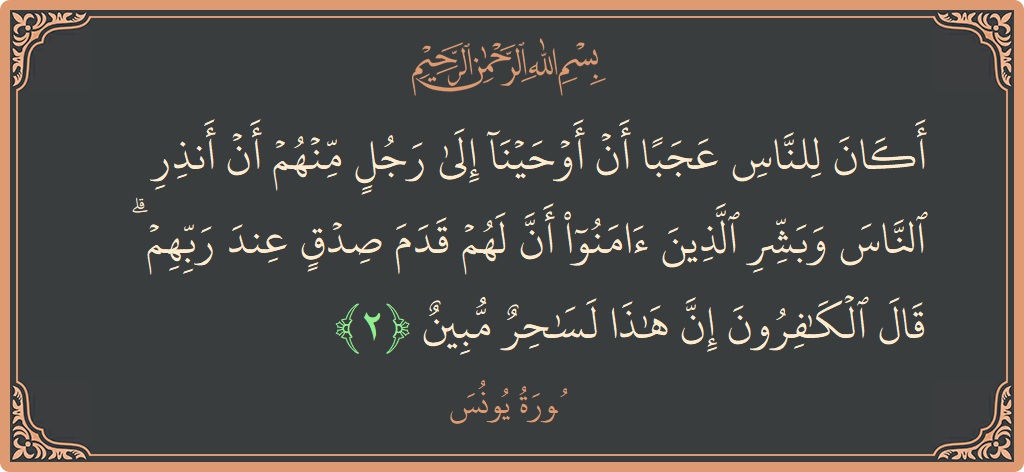 بِسْمِ اللهِ الرَّحْمٰنِ الرَّحِيْمِ
أَكَانَ لِلنَّاسِ عَجَبًا أَنۡ أَوۡحَيۡنَآ إِلَىٰ رَجُلٍ مِّنۡهُمۡ أَنۡ أَنذِرِ
ٱلنَّاسَ وَبَشِّرِ ٱلَّذِينَ ءَامَنُوٓاْ أَنَّ لَهُمۡ قَدَمَ صِدۡقٍ عِندَ رَبِّهِمۡۗ
قَالَ ٱلۡكَٰفِرُونَ إِنَّ هَٰذَا لَسَٰحِرٌ مُّبِينٌ ﴿٢﴾
سُورَةُ يُونُسَ